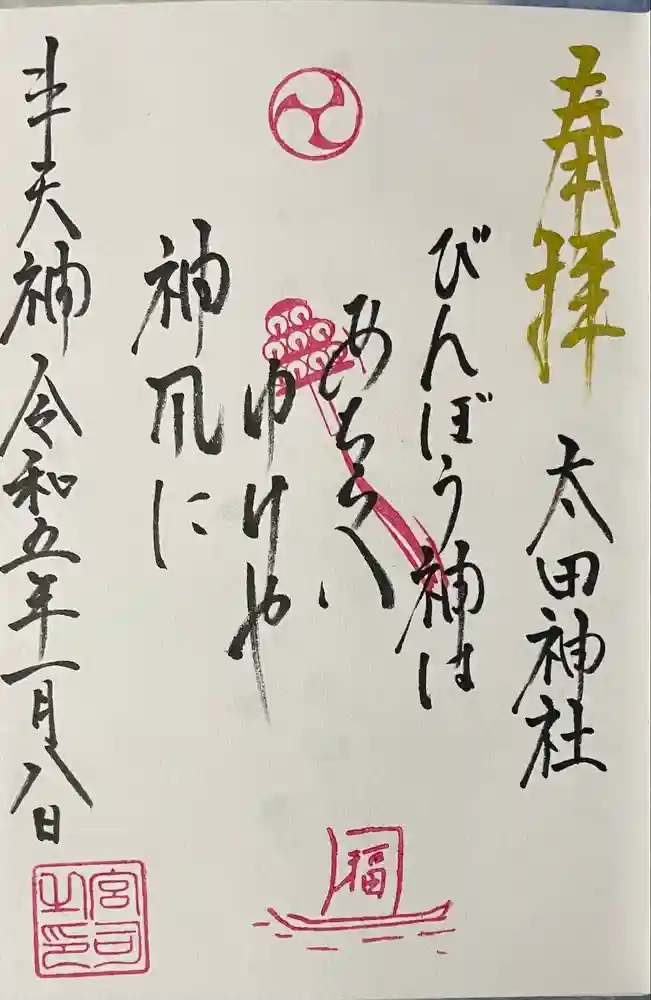 奉拝
太田神社
びんぼう神は
あちらへ
ゆけや
神爪に
半天神
令和五年一月八日
福
宮司之印